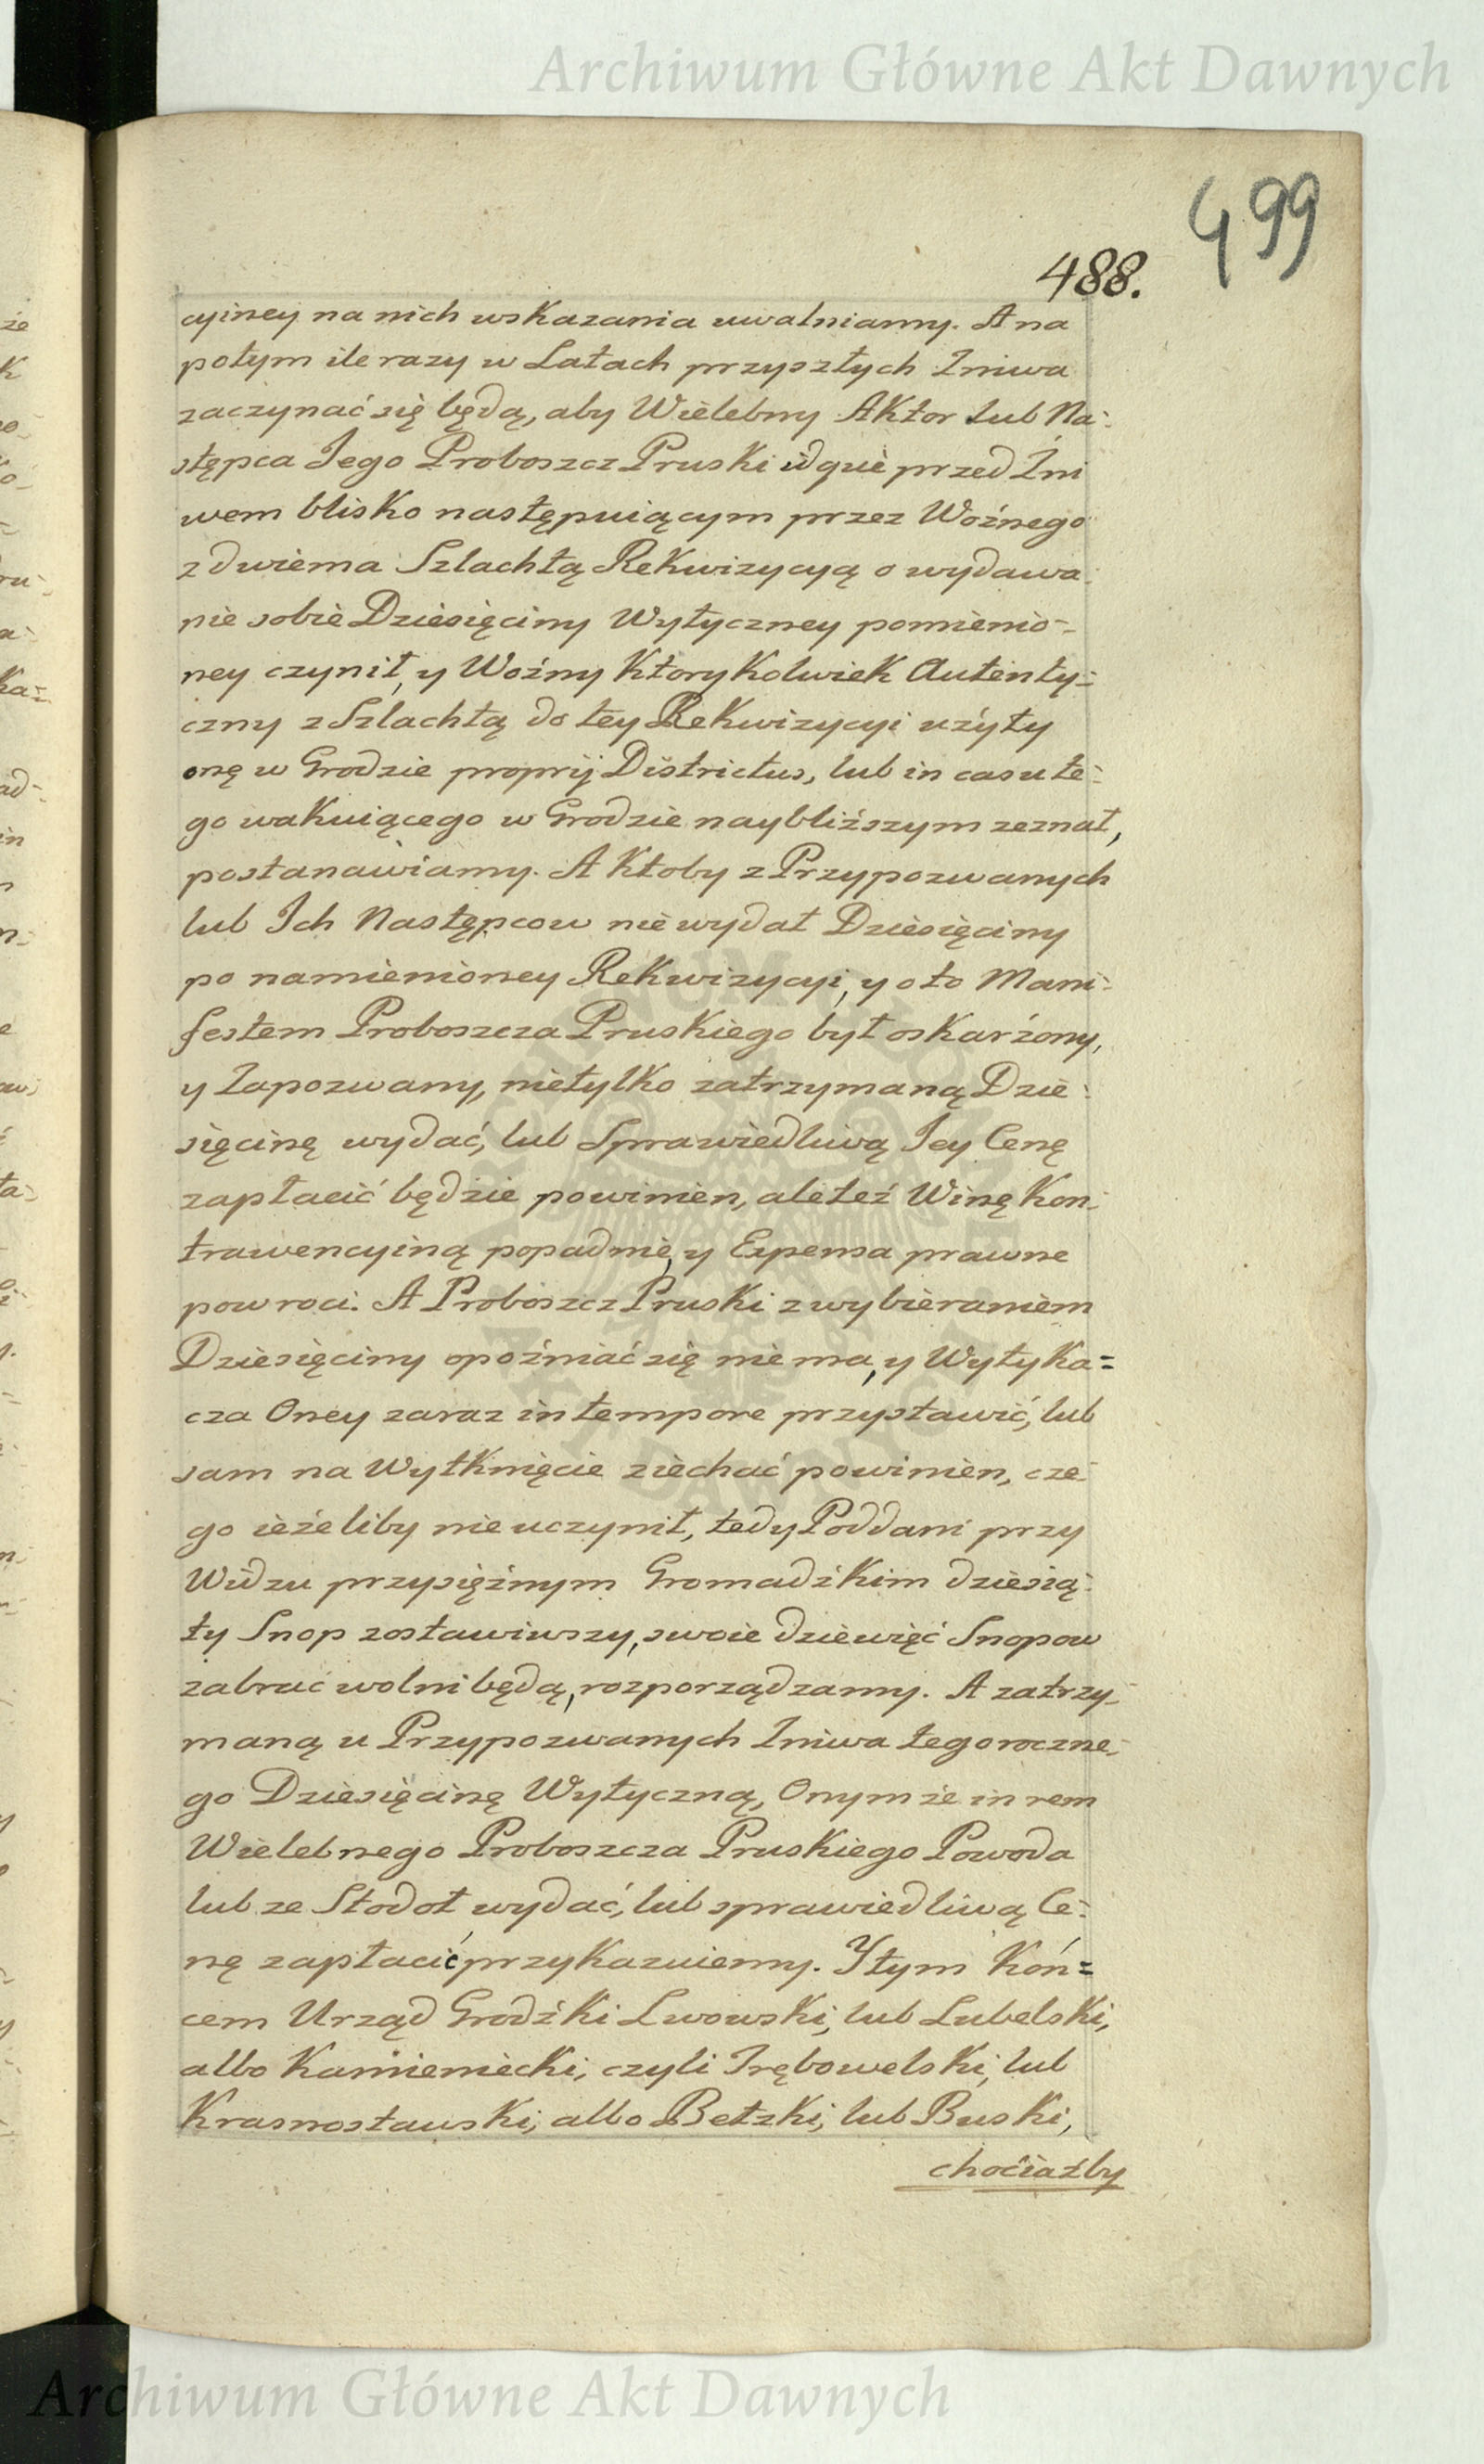 Archiwum Główne Akt Dawnych
499
488.
cyiney na nich wskazania uwalniamy. A na
potym ile razy w Latach przyszłych Zniwa
zaczynać się będą, aby Wielebny Aktor lub Na-
stępca Jego Proboszcz Pruski idque przed Żni
wem blisko następuiącym przez Woźnego
z dwiema Szlachtą Rekwizycyą o wydawa-
nie sobie Dziesięciny Wytyczney pomienio-
ney czynił, y Woźny Ktorykolwiek Autenty-
czny z Szlachtą do tey Rekwizycyi użyty
onę w Grodzie proprij Districtus, lub in casu te-
go wakuiącego w Grodzie naybliższym zeznał,
postanawiamy. A Ktoby z Przypozwanych
lub Ich Następcow nie wydał Dziesięciny
po namienioney Rekwizycyi, y o to Mani-
festem Proboszcza Pruskiego był oskarżony,
y Zapozwany, nietylko zatrzymaną Dzie-
sięcinę wydać, lub Sprawiedliwą Jey Cenę
zapłacić będzie powinien, ale też Winę Kon-
trawencyiną popadnie, y Expensa prawne
powroci. A Proboszcz Pruski z wybieraniem
Dziesięciny opoźniać się nie ma, y Wytyka=
cza Oney zaraz in tempore przystawić, lub
sam na Wytknięcie ziechać powinien, cze-
go ieżeliby nie uczynił, tedy Poddani przy
Widzu przysiężnym Gromadźkim dziesią-
ty Snop zostawiwszy, swoie dziewięć Snopow
zabrać wolni będą, rozporządzamy. A zatrzy-
maną u Przypozwanych Zniwa tegoroczne-
go Dziesięcinę Wytyczną, Onymże in rem
Wielebnego Proboszcza Pruskiego Powoda
lub ze Stodoł wydać, lub sprawiedliwą Ce-
nę zapłacić przykazuiemy. Y tym Koń=
cem Urząd Grodźki Lwowski, lub Lubelski,
albo Kamieniecki, czyli Trębowelski, lub
Krasnostawski, albo Bełzki, lub Buski,
chociażby
Archiwum Główne Akt Dawnych